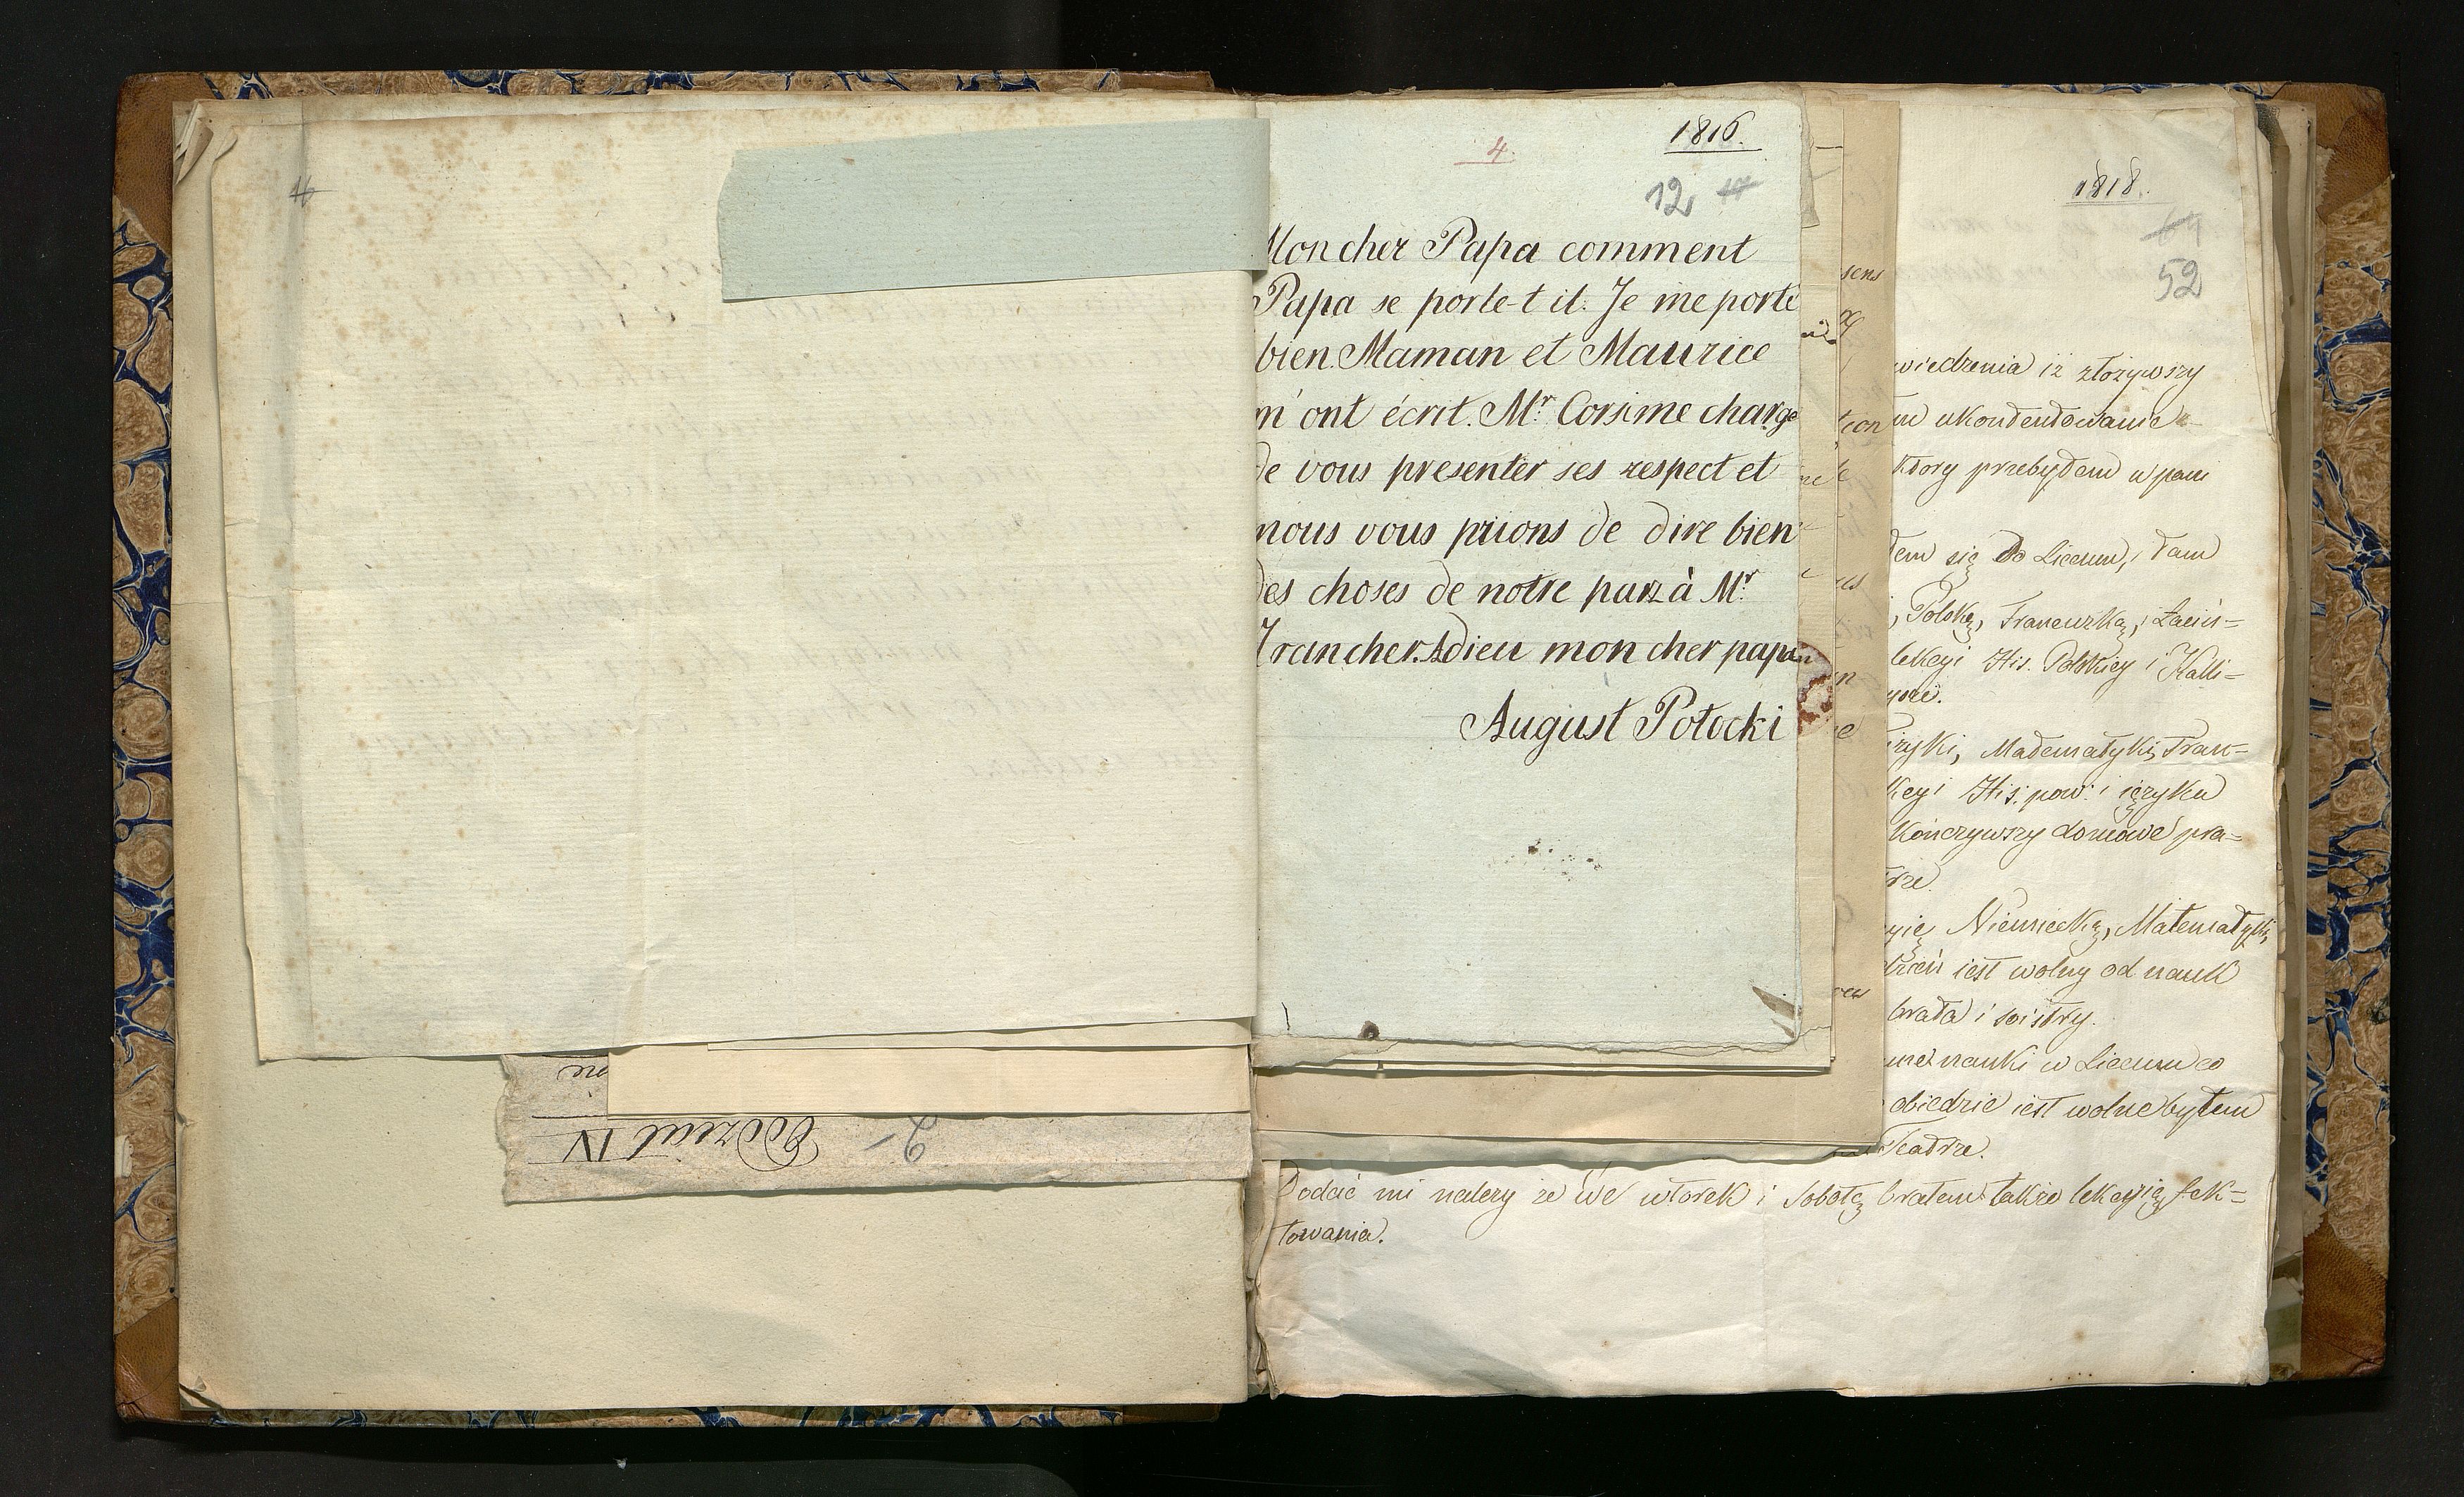 1816.
4.
12
Mon cher Papa comment
Papa se porte-t il. Je me porte
bien. Maman et Maurice
m'ont écrit. Mr. Corsime charge
de vous presenter ses respect et
nous vous prions de dire bien
des choses de notre part à Mr.
Francher. Adieu mon cher papa
August Potocki
1818.
64
52
sens
tion
wiedzenia iż złożywszy
ukontentowanie
który przebyłem w pani
łem się do Liceum, i tam
, Polską, Francuzką, Łaciń=
lekcyi His. Polskiey i Kalli=
Fizyki, Matematyki, Fran=
kcyi His. pow. i ięzyku
kończywszy domowé pra=
Niemiecką, Matematyki,
dzień iest wolny od nauk
brata i siostry.
nauki w Liceum co
obiedzie iest wolne byłem
Teatrze.
Dodać mi należy że we wtorek i Sobotę brałem także lekcyią fek=
towania.
2
Oddział IV